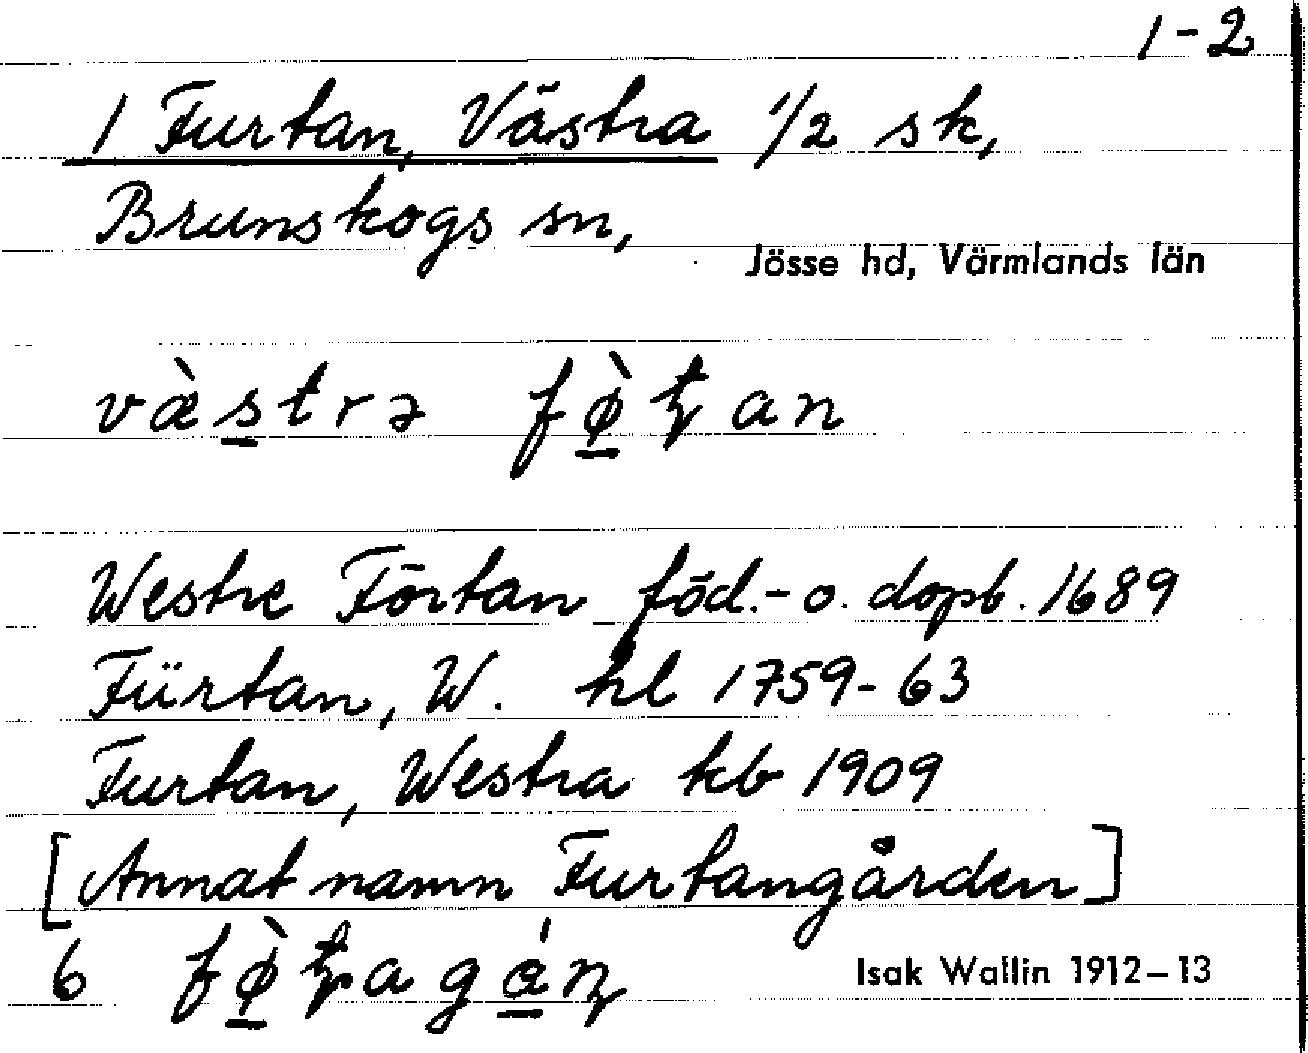 1-2
1 Furtan, Västra 1/2 sk,
Brunskogs sn,
Jösse hd, Värmlands län
væ̀s̲trə fø̲̀ʈan
Westre Förtan föd.- o. dopb. 1689
Fürtan, W. hl 1759-63
Furtan, Westra kb 1909
[Annat namn Furtangården]
6 fø̲̀ʈagá̲ɳ
Isak Wallin 1912-13